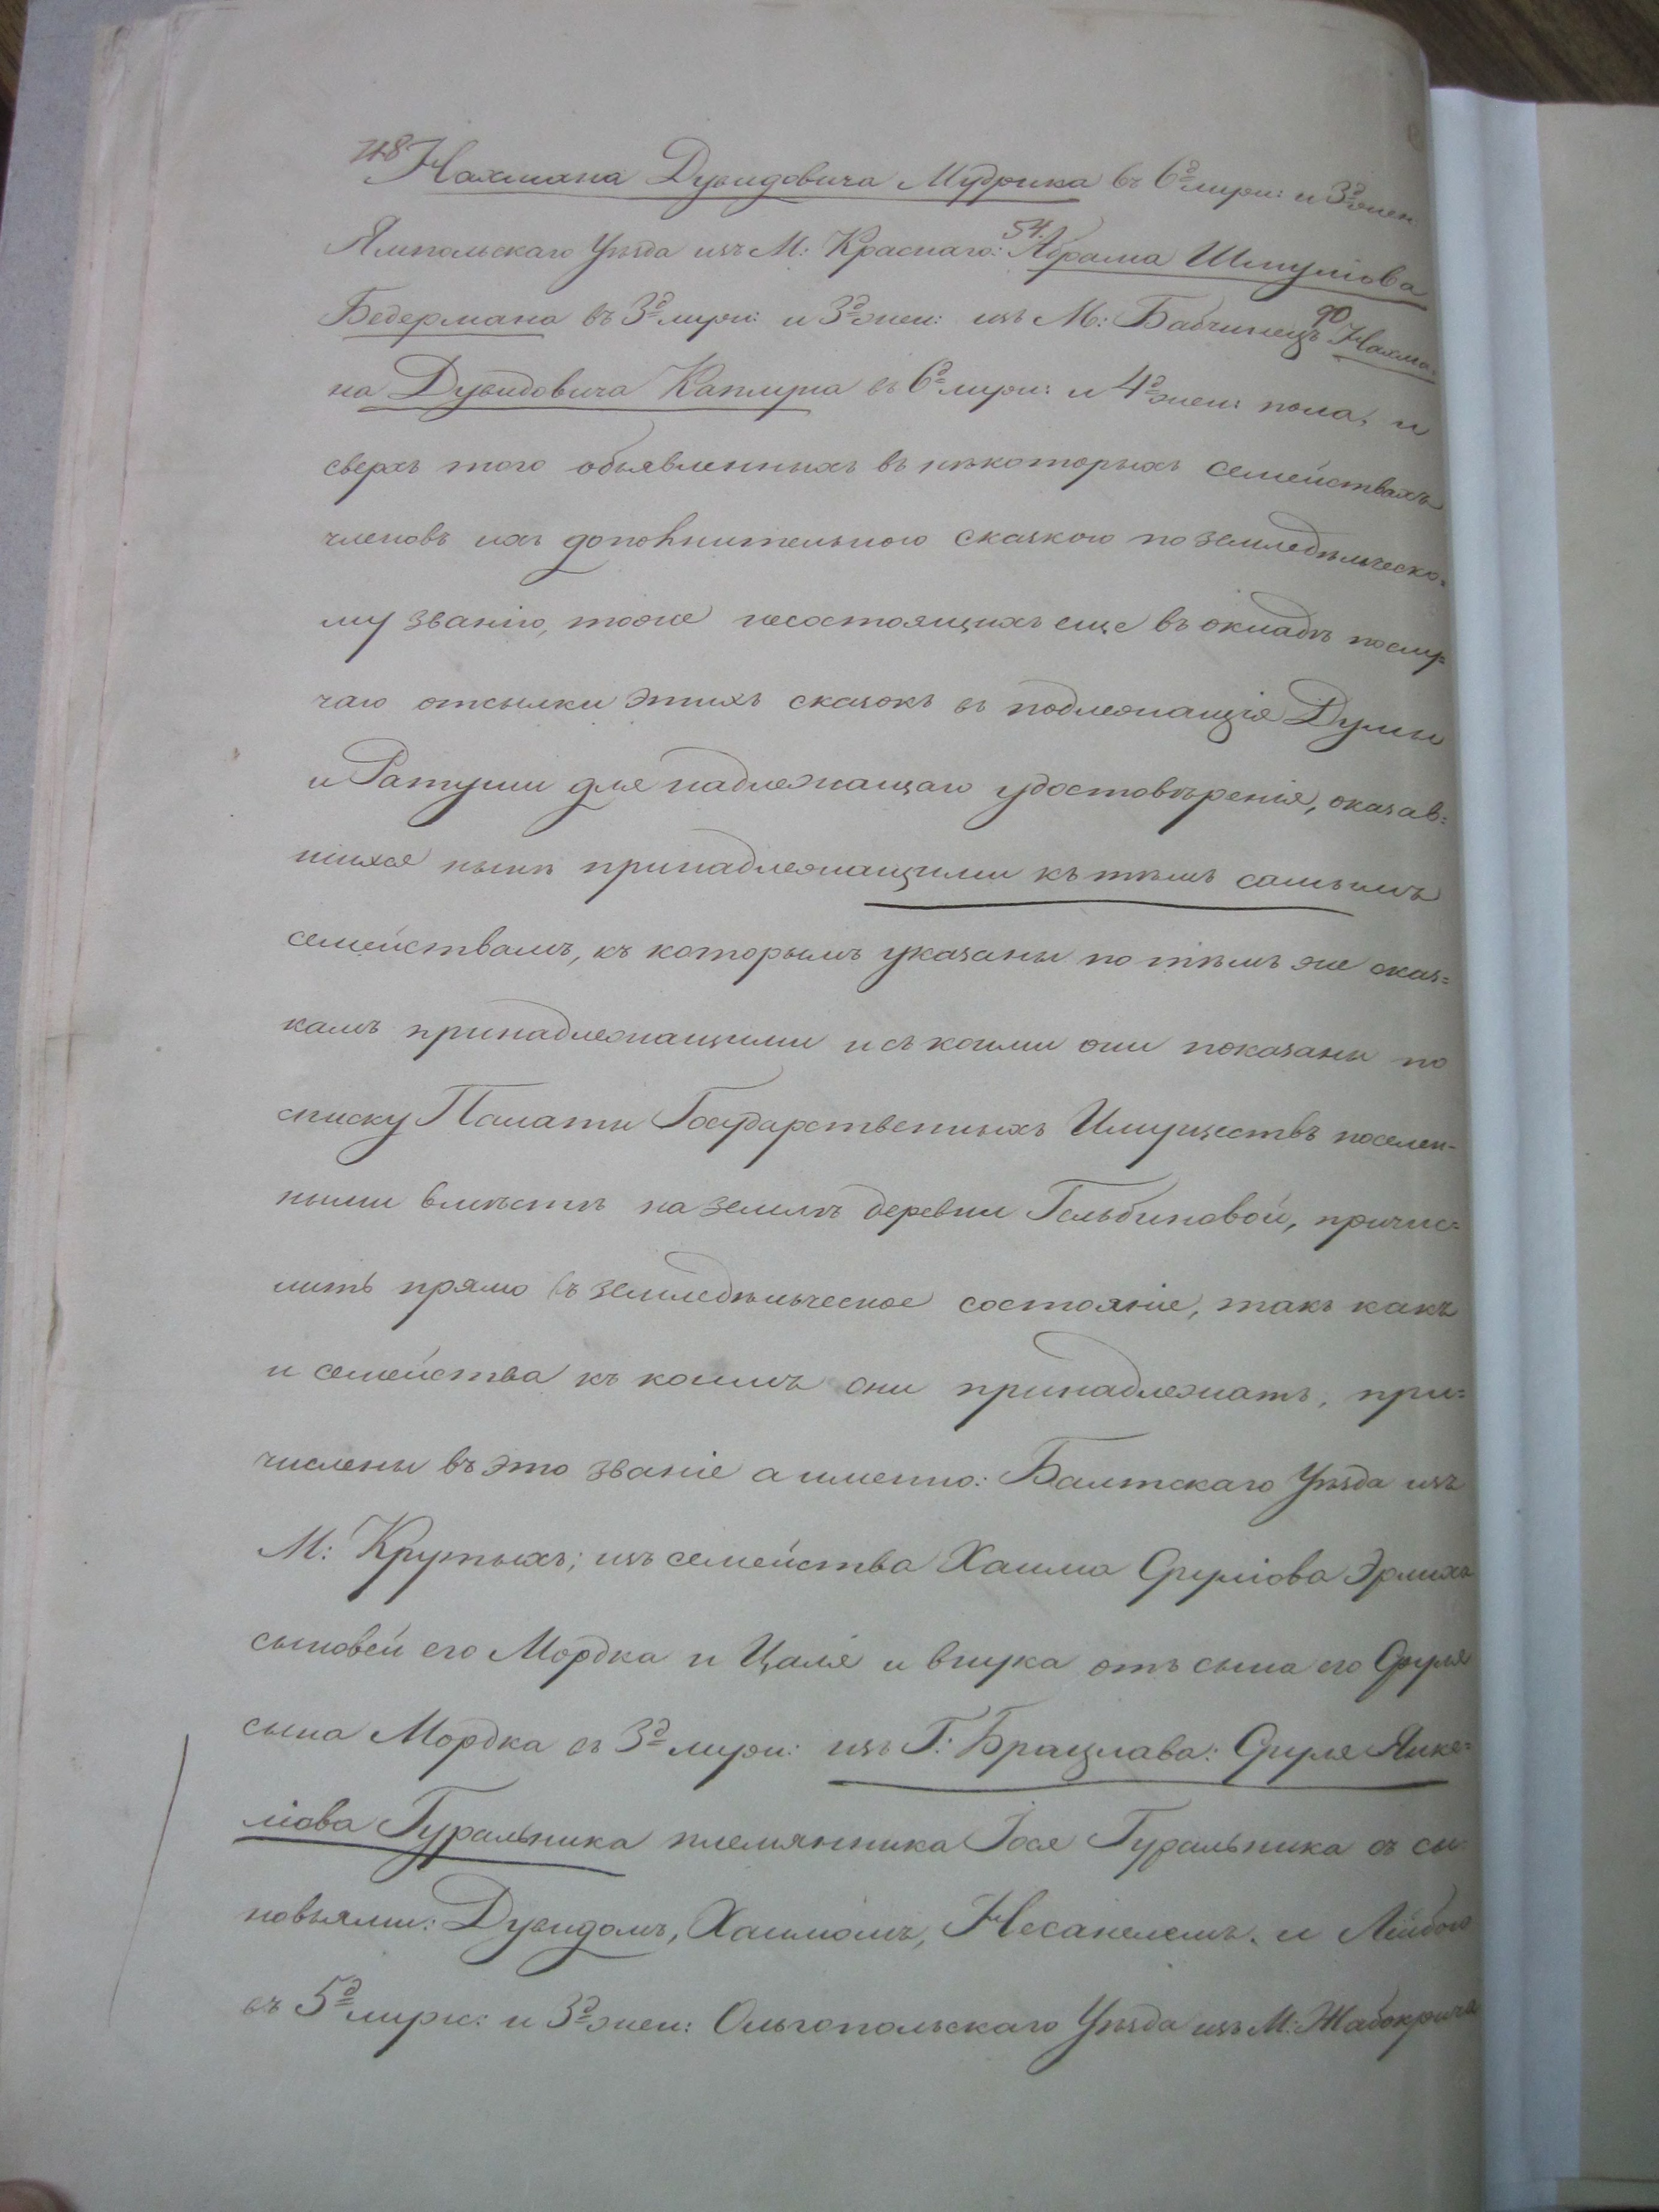 48 Нахмана Дувидовича Мудрика въ 6<sup>д</sup> мужи: и 3<sup>д</sup> жен:
Ямпольскаго Уѣзда изъ М: Краснаго: 54. Абрама Шмуліова
Бедермана въ 3<sup>д</sup> мужи: и 3<sup>д</sup> жен: изъ М: Бабчинецъ 90 Нахма-
на Дувидовича Каплуна въ 6<sup>д</sup> мужи: и 4<sup>д</sup> жен: пола, и
сверхъ того объявленныхъ въ нѣкоторыхъ семействахъ
членовъ ихъ дополнительною сказкою по земледѣльческо-
му званію, тоже несостоящихъ еще въ окладѣ по слу-
чаю отсылки этихъ сказокъ въ подлежащія Думы
и Ратуши для надлежащаго удостовѣренія, оказав-
шихся нынѣ принадлежащими къ тѣмъ самымъ
семействамъ, къ которымъ указаны по тѣмъ же сказ-
камъ принадлежащими и съ коими они показаны по
списку Палаты Государственныхъ Имуществъ поселен-
ными вмѣстѣ на землѣ деревни Гельбиновой, причис-
лить прямо въ земледѣльческое состояніе, такъ какъ
и семейства къ коимъ они принадлежатъ, при-
числены въ это званіе а именно: Балтскаго Уѣзда изъ
М: Крутыхъ; изъ семейства Хаима Сруліова Эрлиха
сыновей его Мордка и Цаля и внука отъ сына его Сруля
сына Мордка въ 3<sup>д</sup> мужи: изъ Г: Брацлава: Сруля Янке-
ліова Гуральника племянника Іося Гуральника съ сы-
новьями: Дувидомъ, Хаимомъ, Несанелемъ и Лейбою
въ 5<sup>д</sup> мужи: и 3<sup>д</sup> жен: Ольгопольскаго Уѣзда изъ М: Жабокрича